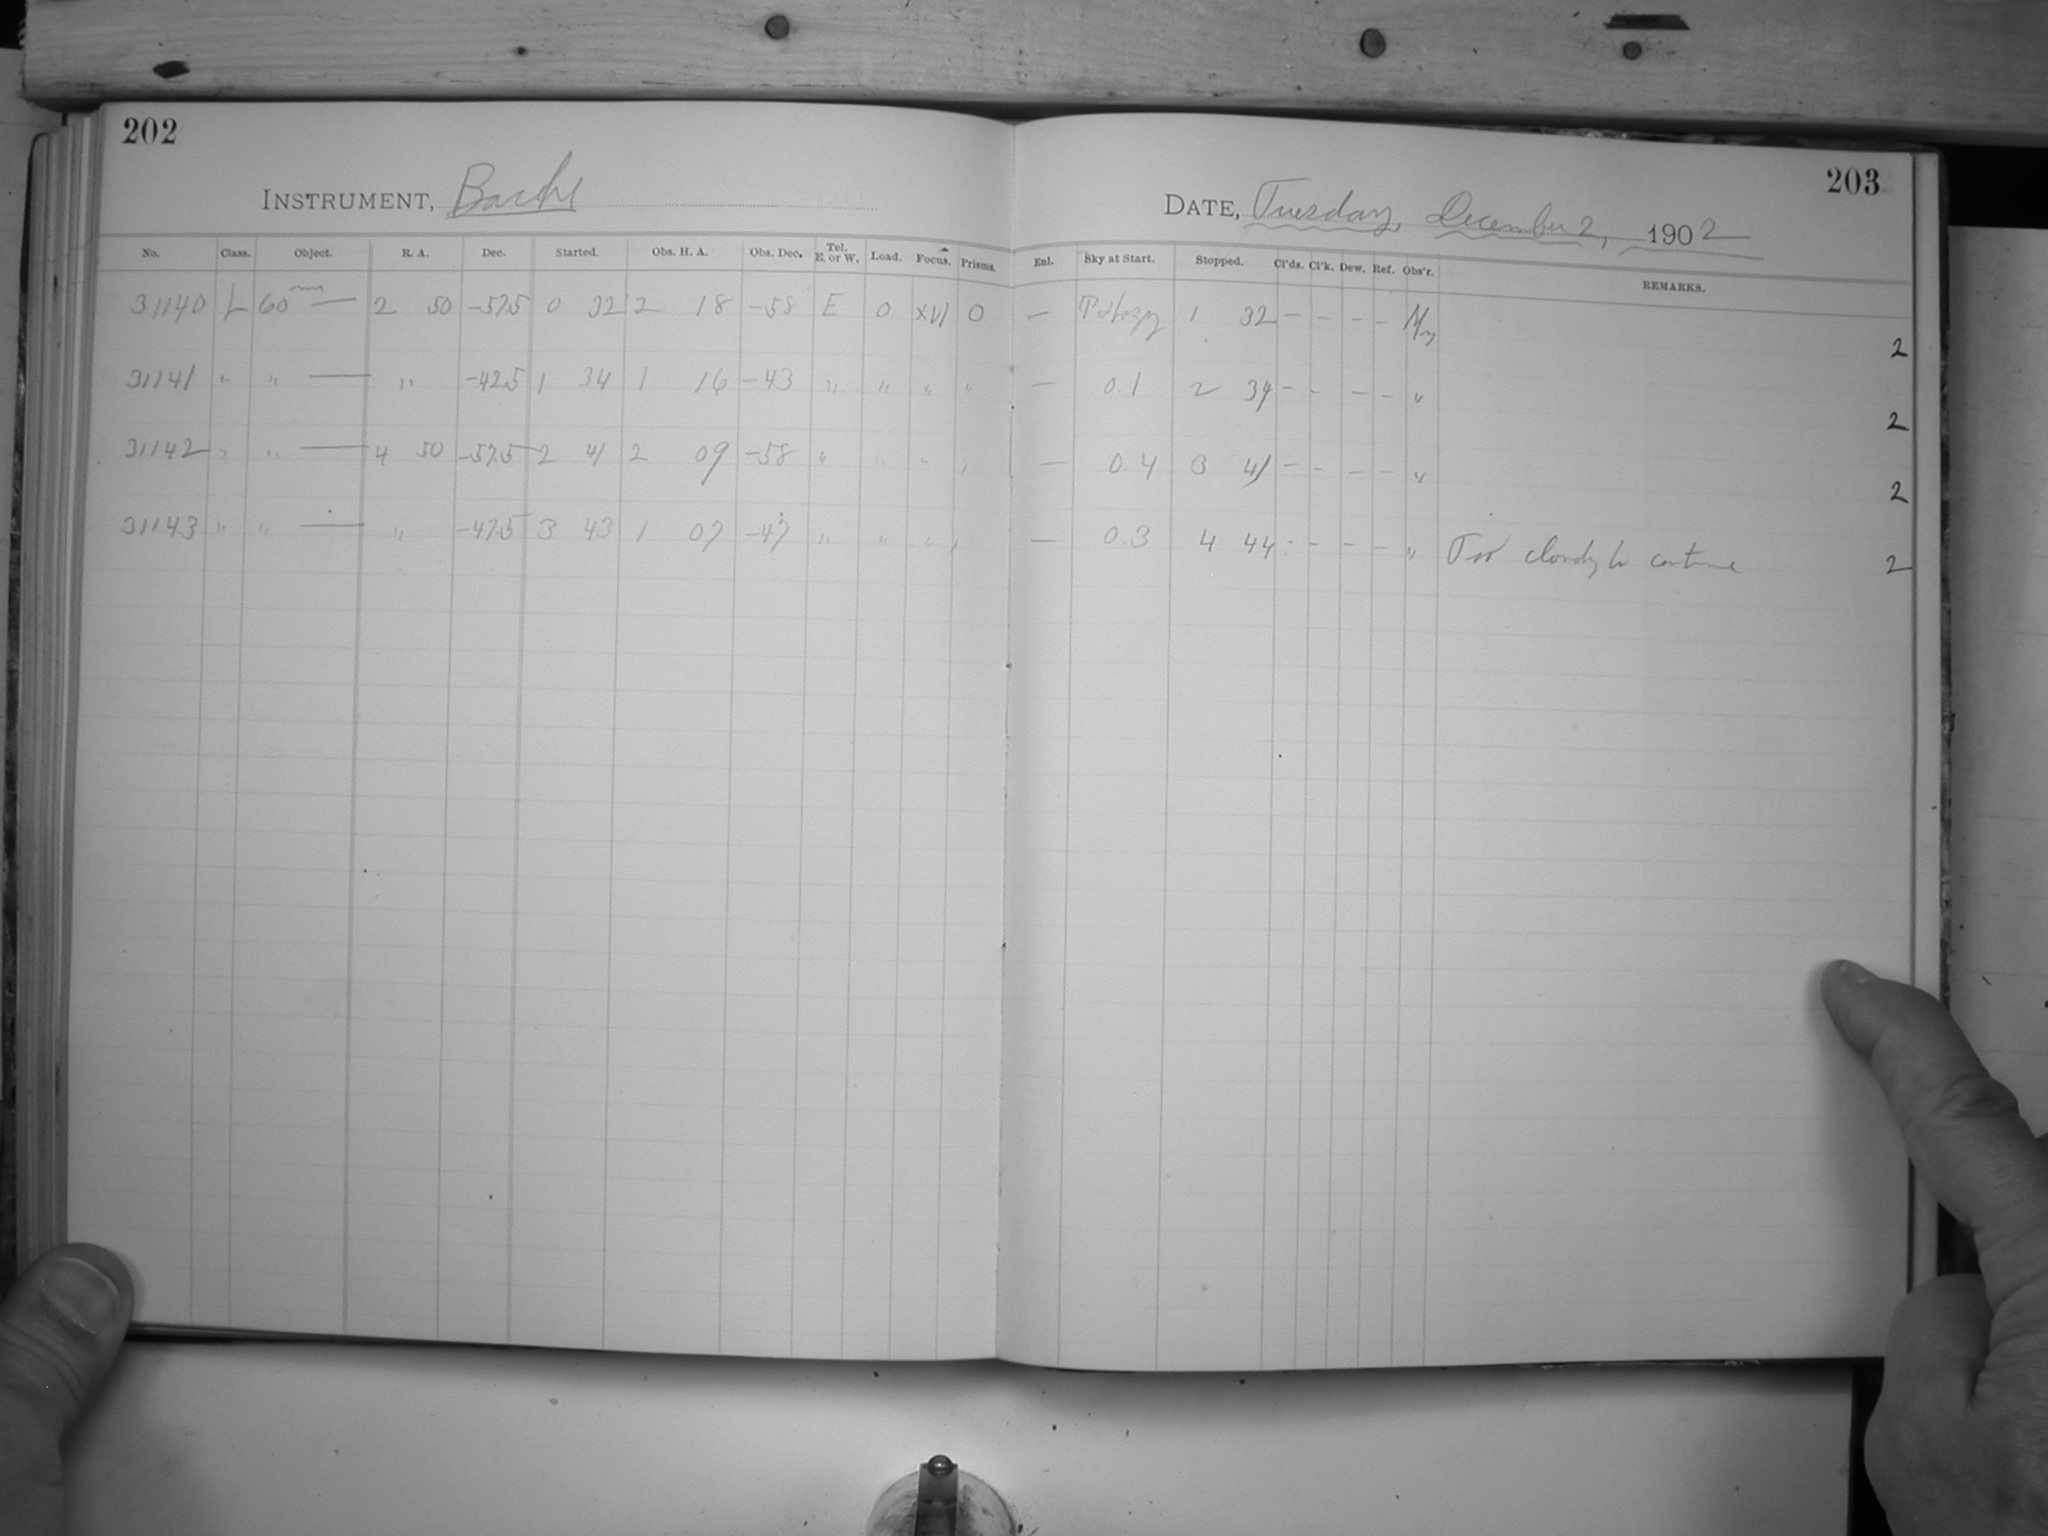 202
INSTRUMENT, Bache
No. Class. Object. R. A. Dec. Started. Obs. H. A. Obs. Dec. Tel. E. or W. Load. Focus. Prisms.
31140 L 60m — 2 50 -57.5 0 32 2 18 -58 E 0 XVI 0
31141 " " — " -42.5 1 34 1 16 -43 " " " "
31142 " " — 4 50 -57.5 2 41 2 09 -58 " " " "
31143 " " — " -47.5 3 43 1 07 -47 " " " "
203
DATE, Tuesday, December 2, 1902
Enl. Sky at Start. Stopped. Cl'ds. Cl'k. Dew. Ref. Obs'r. REMARKS.
— 1 32 - - - - 2
— 0.1 2 34 - - - - " 2
— 0.4 3 41 - - - - " 2
— 0.3 4 44 - - - - " Too cloudy to continue 2